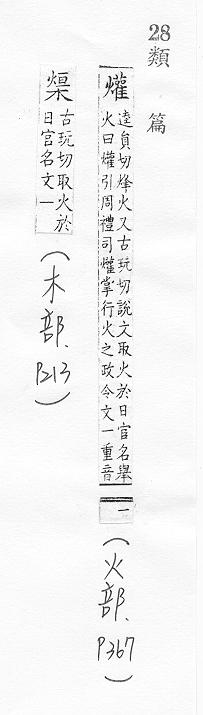 28
類篇
爟逵員切烽火又古玩切說文取火於日官名舉
火曰爟引周禮司爟掌行火之政令文一重音
一
(火部、P367)
古玩切取火於
日官名文一
(木部、P213)